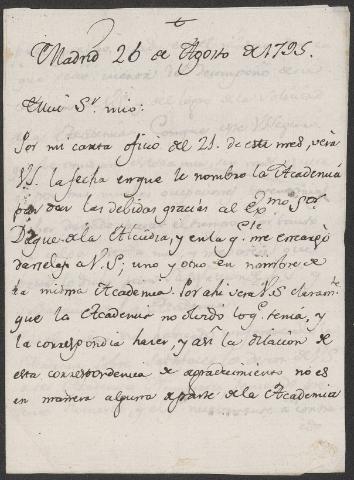 Madrid 26 de Agosto de 1795.
Mui Sr. mio:
Por mi carta oficio del 21. de este mes, verá
V.S. la fecha en que le nombro la Academia
par dar las debidas gracias al Exmo. Sor
Duque de la Alcudia, y en la qe. me encargó
darselas a V.S; uno y otro en nombre de
la misma Academia. Por ahi vera V.S claramte.
que la Academia no olvido lo q. tenia, y
la correspondia hacer, y así la dilacion de
esta correspondencia de agradecimiento no es
en manera alguna de parte de la Academia